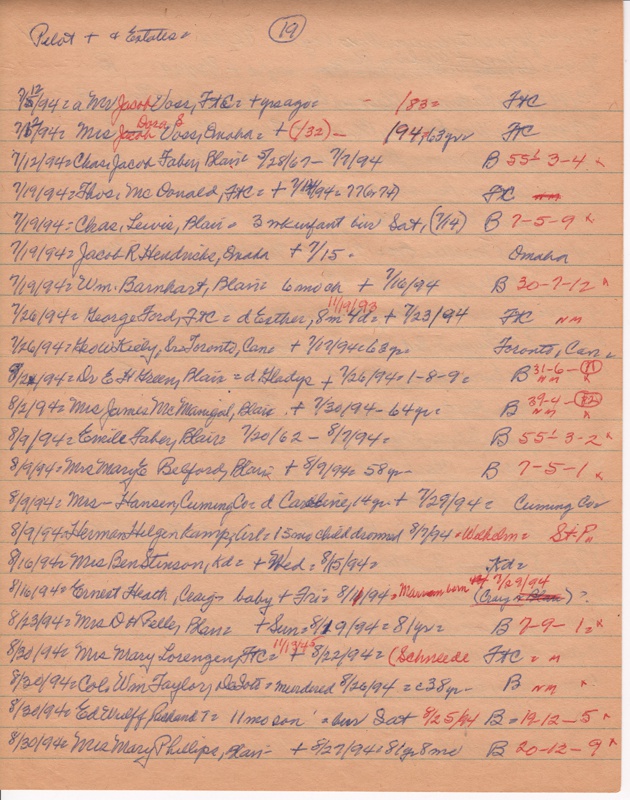 Pilot + & Estates = (19)
7/12/94 = a Mr Jacob Voss, FtC = + yrs ago = - /83 = FtC
7/12/94 = Mrs Dora S Voss, Omaha = + (1/32) - /94 = 63yr FC
7/12/94 = Chas. Jacob Faber, Blair = 5/28/67 - 7/7/94 B 55½ 3-4 x
7/19/94 = Thos. McDonald, FtC = + 7/14/94 = 77 or 78) FC
7/19/94 = Chas. Lewis, Blair = 3 mk infant bur Sat, (7/14) B 7-5-9 x
7/19/94 = Jacob R Hendricks, Omaha + 7/15. Omaha
7/19/94 = Wm. Barnhart, Blair = 6 mo ch + 7/16/94 B 30-7-12 x
7/26/94 = George Ford, FtC = d Esther, 8m 4d = 11/19/93 + 7/23/94 FtC NM
7/26/94 = Geo W Keely, Sr. Toronto, Can = + 7/19/94 = 63yr = Toronto, Can =
8/2/94 = Dr E H Green, Blair = d Gladys + 7/26/94 = 1-8-9 = B 31-6-(11) NM x
8/2/94 = Mrs James McManigal, Blair + 7/30/94 - 64yr = B 39-4-(12) NM x
8/9/94 = Emile Faber, Blair = 7/20/62 - 8/7/94 = B 55½ 3-2 x
8/9/94 = Mrs Mary E Belford, Blair + 8/9/94 = 58yr - B 7-5-1 x
8/9/94 = Mrs - Hansen, Cuming Co = d Caroline, 14yr + 7/29/94 = Cuming Co
8/9/94 = Herman Helgenkamp, Arl = 15mo child drowned 8/7/94 = Wilhelm = St. P.
8/16/94 = Mrs Ben Stinson, Kd = + Wed = 8/15/94 = Kd =
8/16/94 = Ernest Heath, Craig = baby + Fri = 8/11/94 = born 7/29/94 (Craig = Blair) ?
8/23/94 = Mrs O H Pelle, Blair = + Sun = 8/19/94 = 81yr = B 7-9-1 = x
8/30/94 = Mrs Mary Lorenzen, FtC = 11/13/45 + 8/22/94 = (Schneede FtC = M
8/30/94 = Col. Wm Taylor, DeSoto = murdered 8/26/94 = c38yr - B NM x
8/30/94 = Ed Wulff, Richland T = 11 mo son = bur Sat 8/25/94 B = 19-12-5 x
8/30/94 = Mrs Mary Phillips, Blair - + 8/27/94 = 81yr 8mo B 20-12-9 x